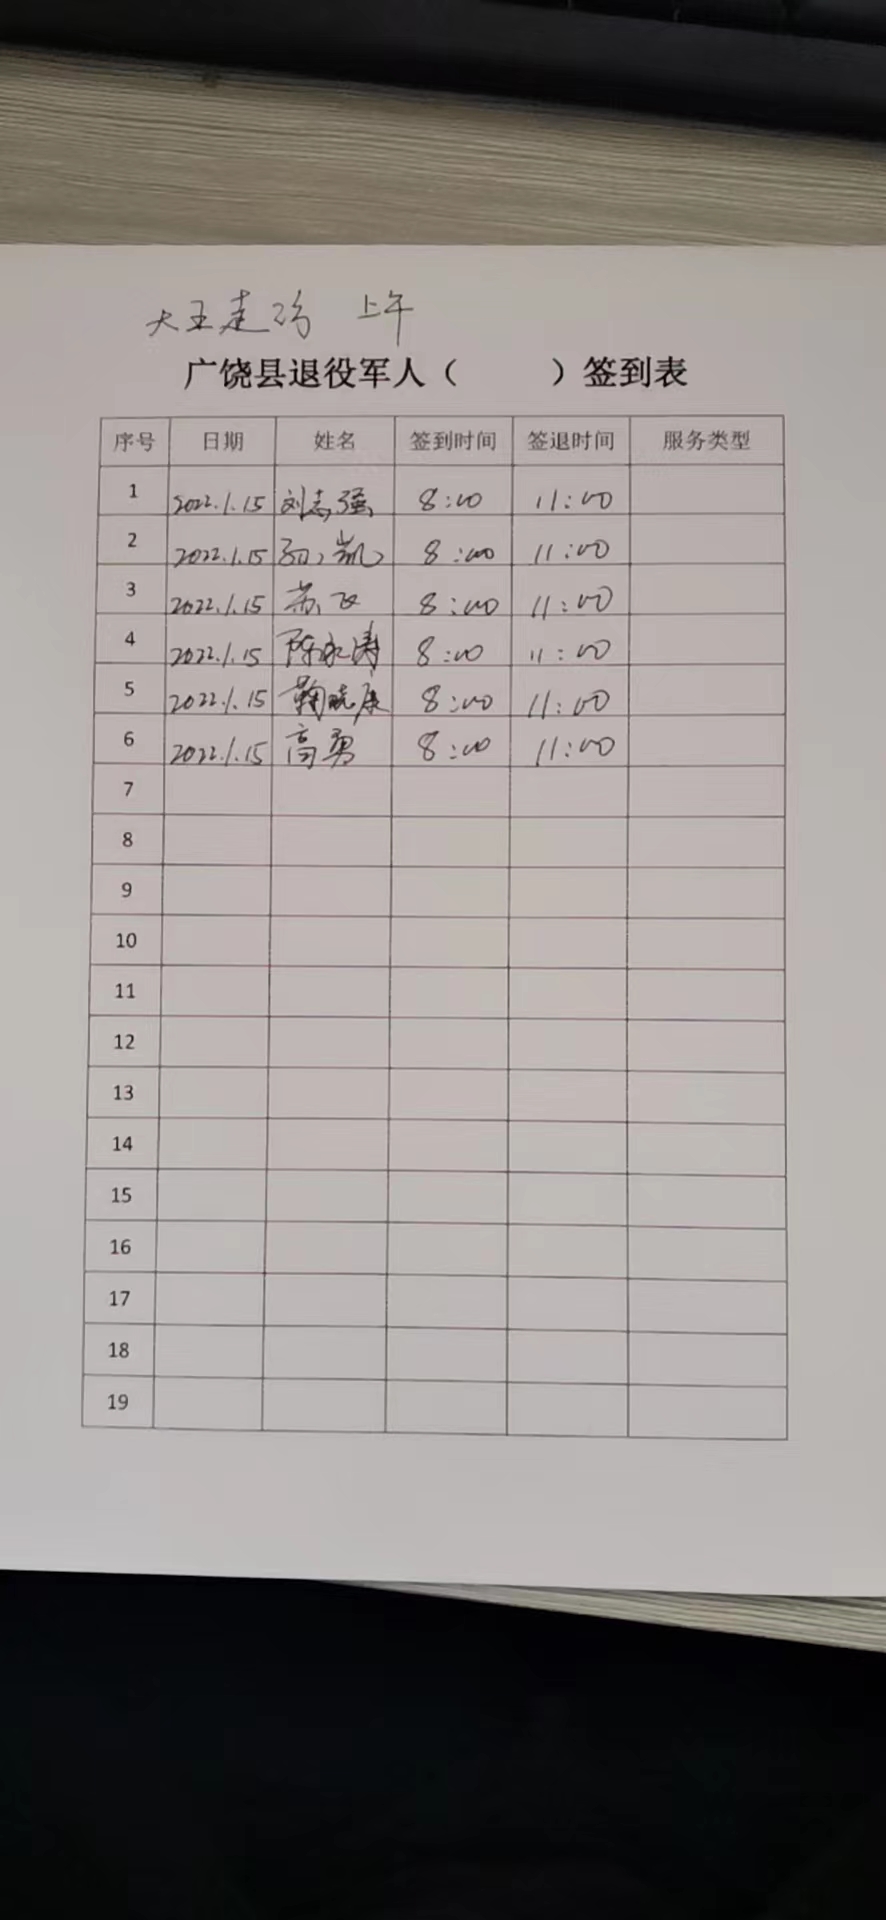 大王走访 上午
广饶县退役军人（ ）签到表
序号 日期 姓名 签到时间 签退时间 服务类型
1 2022.1.15 刘志强 8:00 11:00
2 2022.1.15 凯 8:00 11:00
3 2022.1.15 苏飞 8:00 11:00
4 2022.1.15 陈永涛 8:00 11:00
5 2022.1.15 鞠晓康 8:00 11:00
6 2022.1.15 高勇 8:00 11:00
7
8
9
10
11
12
13
14
15
16
17
18
19